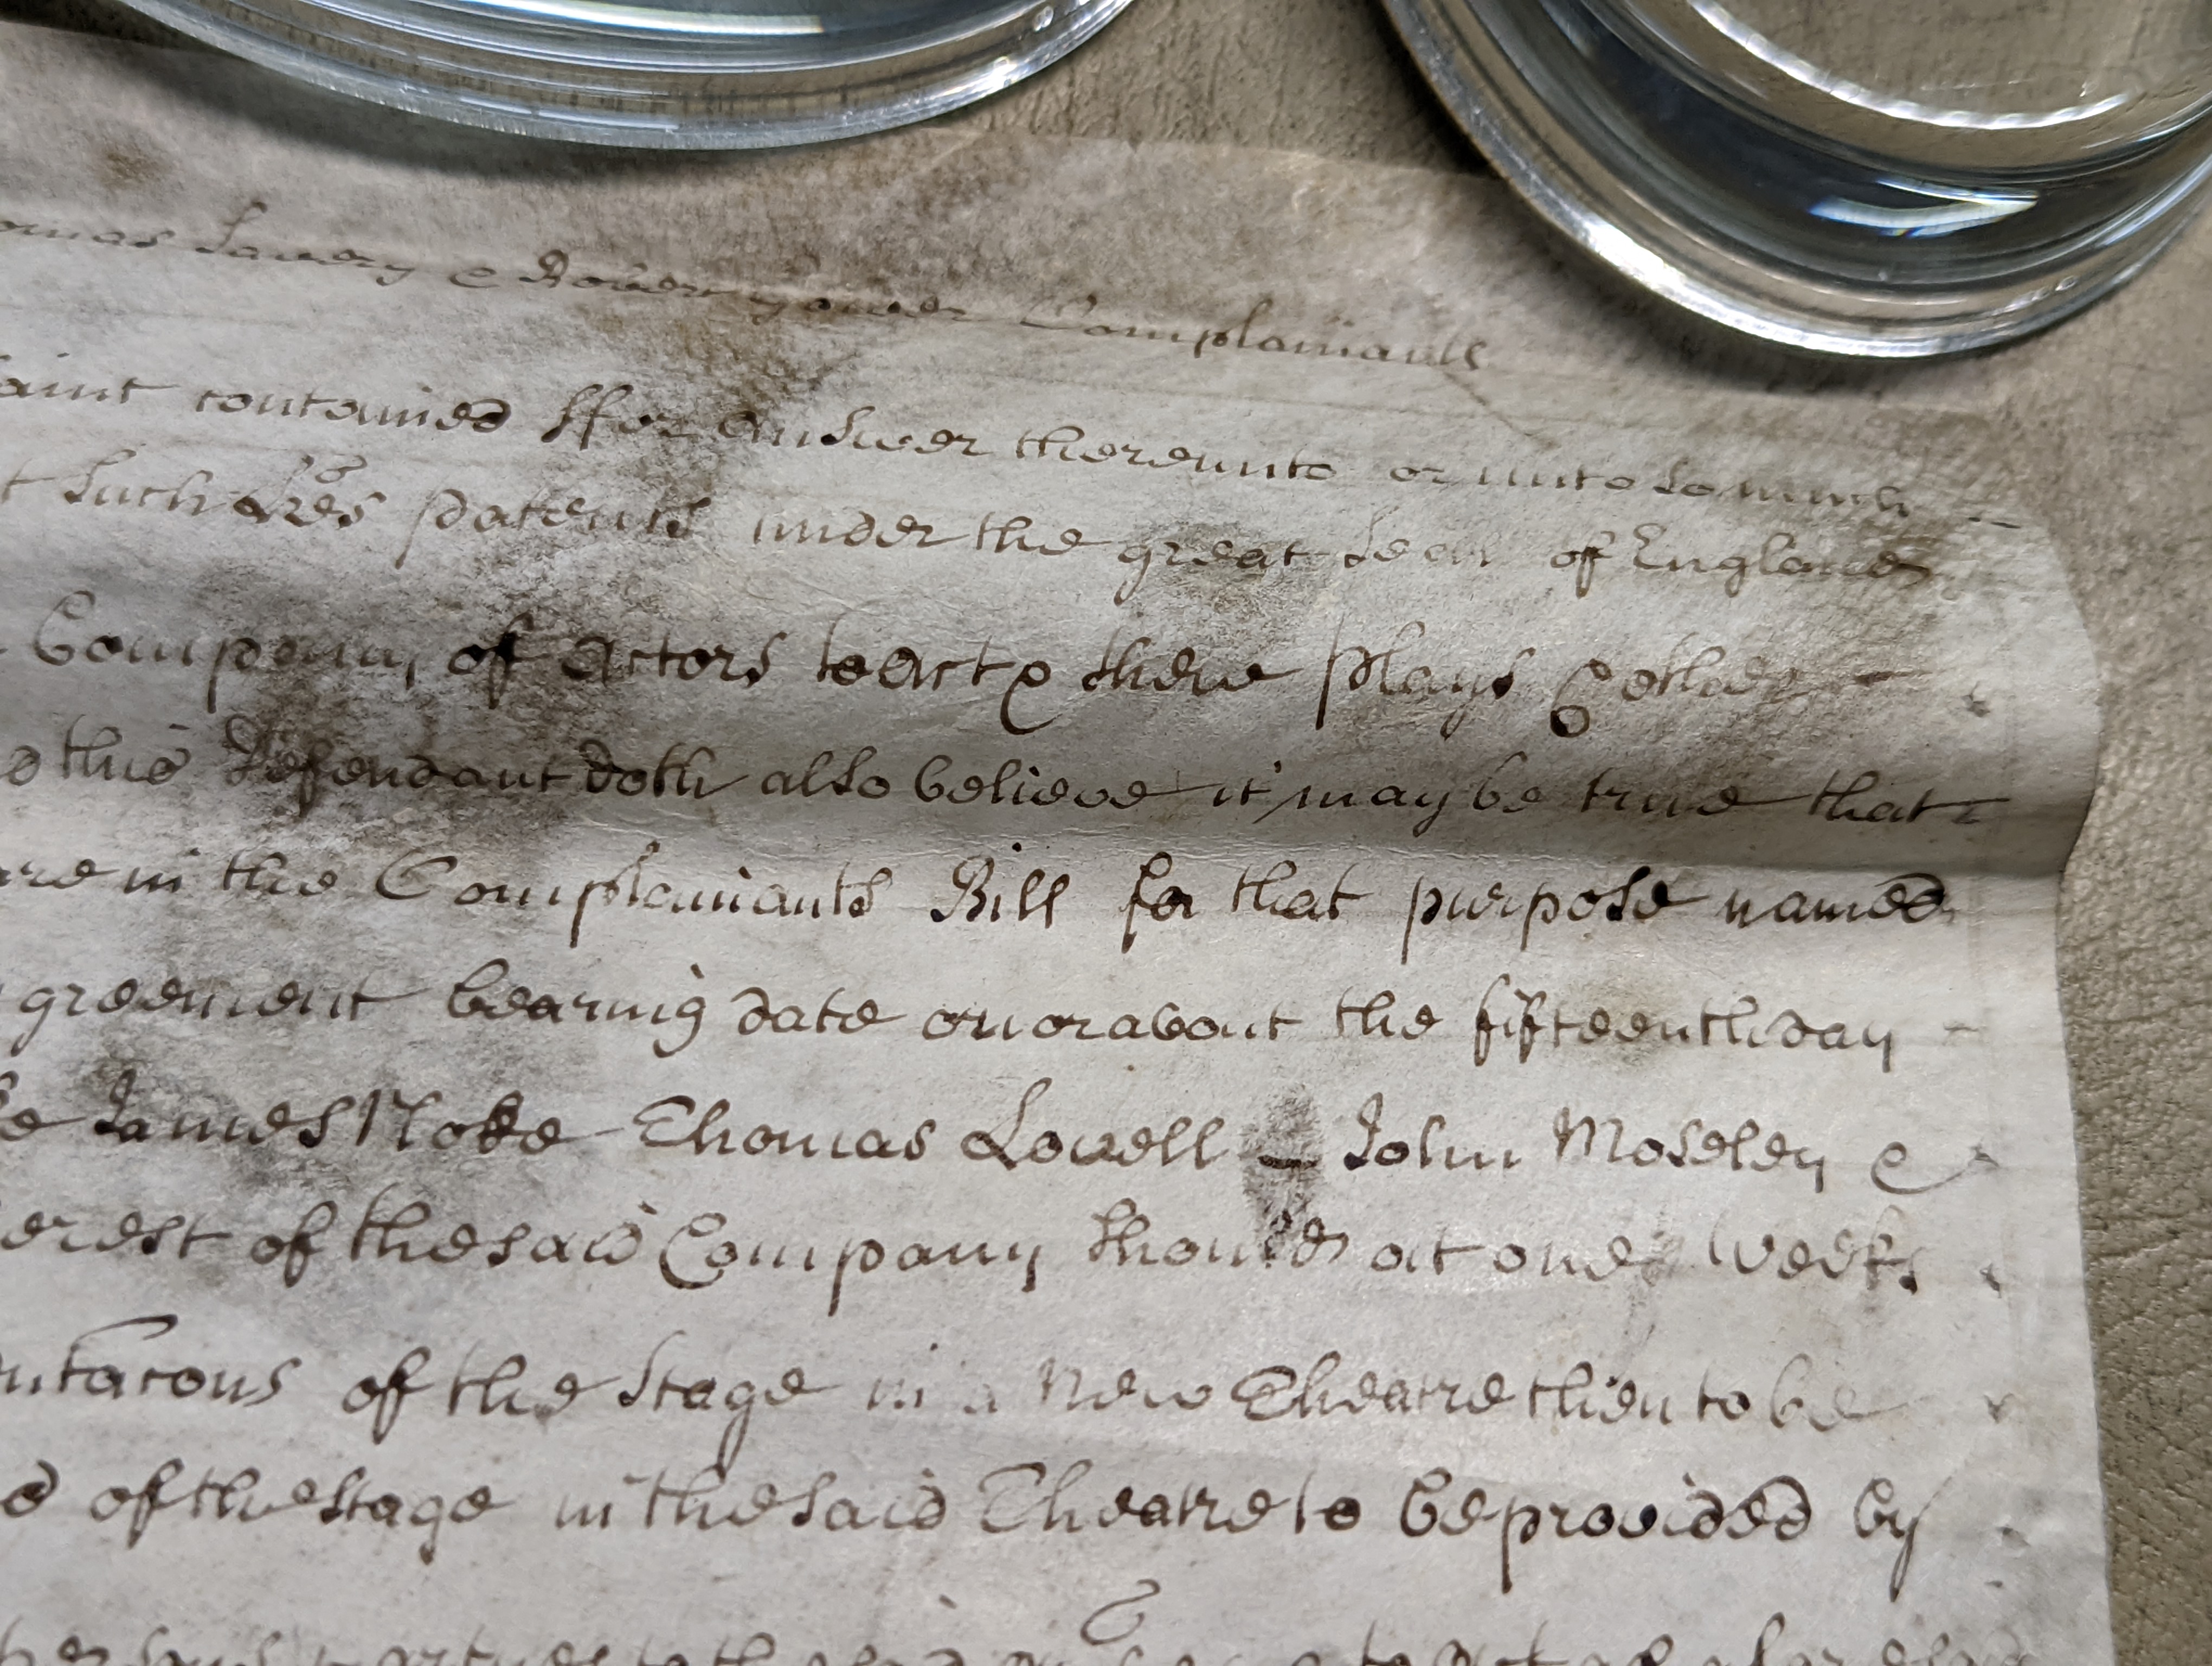 omas Savery & Robert Complainants
aint contained ffor answer thereunto or unto so much
t such Lres patents under the great Seal of England
Company of actors to act & shew Plays & other
d this Defendant doth also believe it may be true that
are in the Complainants Bill for that purpose named
greement bearing date on or about the fifteenth day
James Noke Thomas Lovell John Moseley &
erest of the said Company should at one Weeks
of the Stage in a New Theatre then to be
d of the stage in the said Theatre to be provided by